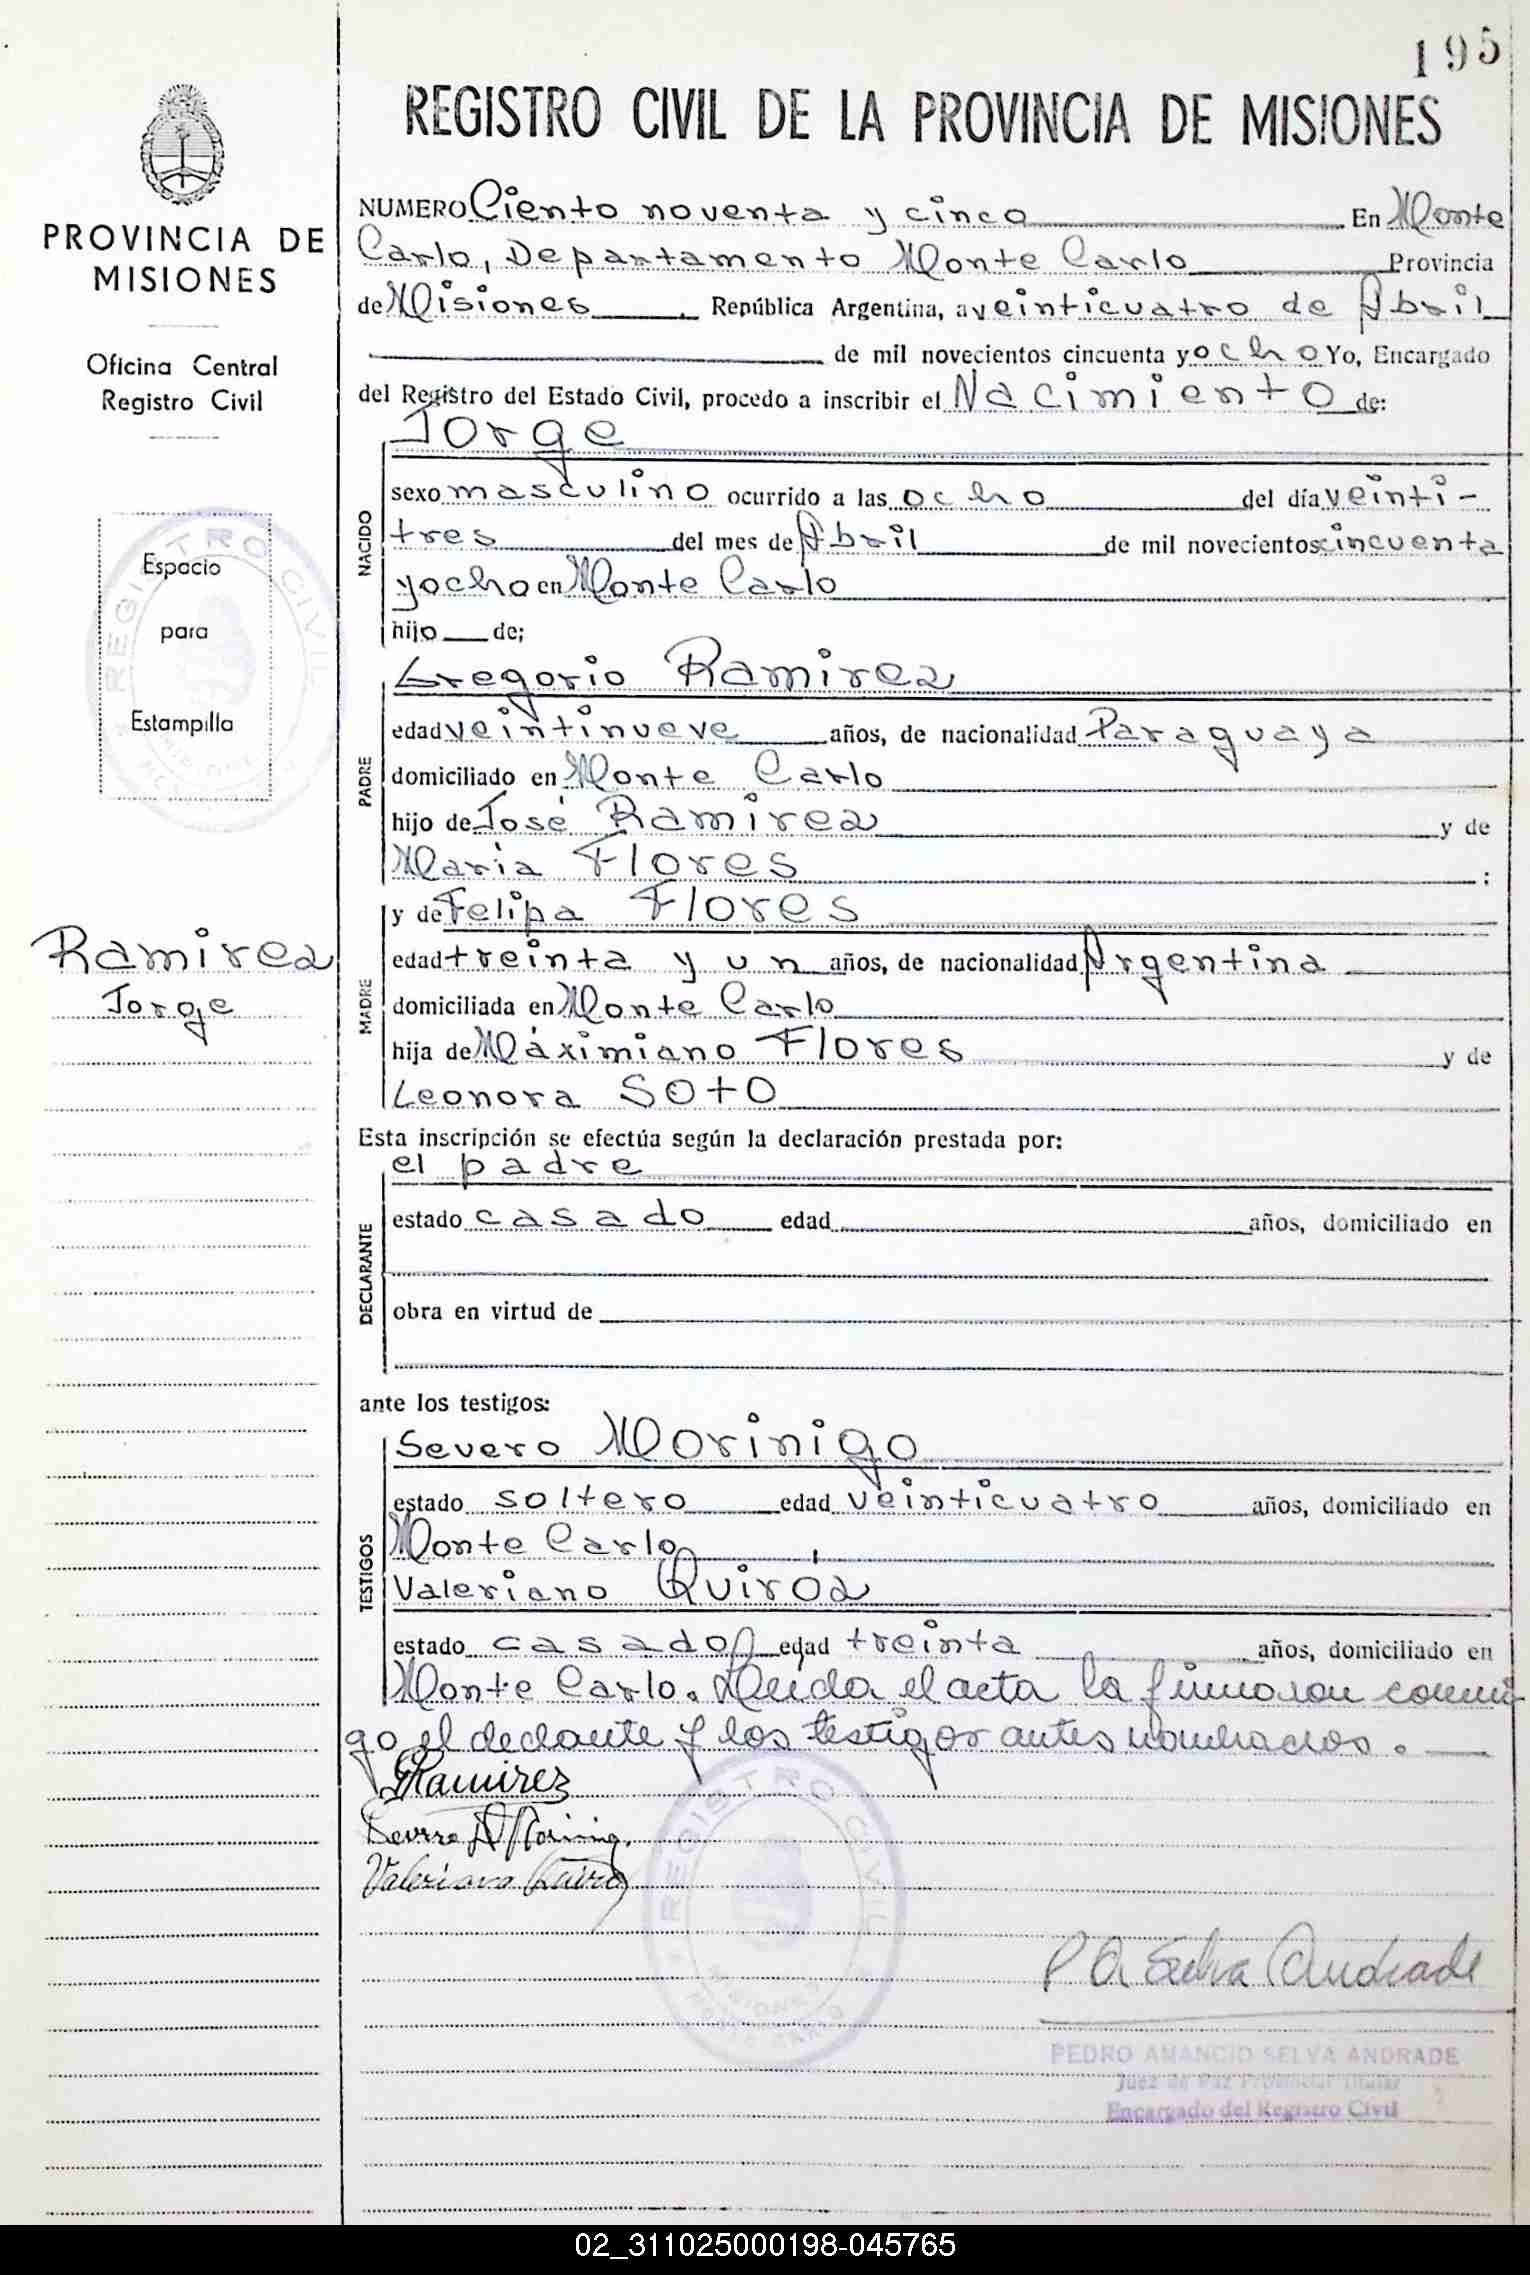 195
REGISTRO CIVIL DE LA PROVINCIA DE MISIONES
PROVINCIA DE
MISIONES
Oficina Central
Registro Civil
Espacio
para
Estampilla
REGISTRO CIVIL
Ramirez
Jorge
NUMERO Ciento noventa y cinco En Monte
Carlo, Departamento Monte Carlo Provincia
de Misiones, República Argentina, a veinticuatro de Abril
de mil novecientos cincuenta y ocho Yo, Encargado
del Registro del Estado Civil, procedo a inscribir el Nacimiento de:
NACIDO
Jorge
sexo masculino ocurrido a las ocho del día veinti-
tres del mes de Abril de mil novecientos cincuenta
y ocho en Monte Carlo
hijo de;
PADRE
Gregorio Ramirez
edad veintinueve años, de nacionalidad Paraguaya
domiciliado en Monte Carlo
hijo de José Ramirez y de
Maria Flores ;
MADRE
y de Felipa Flores
edad treinta y un años, de nacionalidad Argentina
domiciliada en Monte Carlo
hija de Máximiano Flores y de
Leonora Soto
Esta inscripción se efectúa según la declaración prestada por:
DECLARANTE
el padre
estado casado edad años, domiciliado en
obra en virtud de
ante los testigos:
TESTIGOS
Severo Morinigo
estado soltero edad veinticuatro años, domiciliado en
Monte Carlo
Valeriano Quiróz
estado casado edad treinta años, domiciliado en
Monte Carlo. Leida el acta la firmaron conmi
go el declante y los testigos antes nombrados.
GRamirez
Severo Morinig.
Valeriano Quiroz
REGISTRO CIVIL
MISIONES
MONTE CARLO
P A Selva Andrade
PEDRO AMANCIO SELVA ANDRADE
Juez de Paz Provincial Titular
Encargado del Registro Civil
02_311025000198-045765